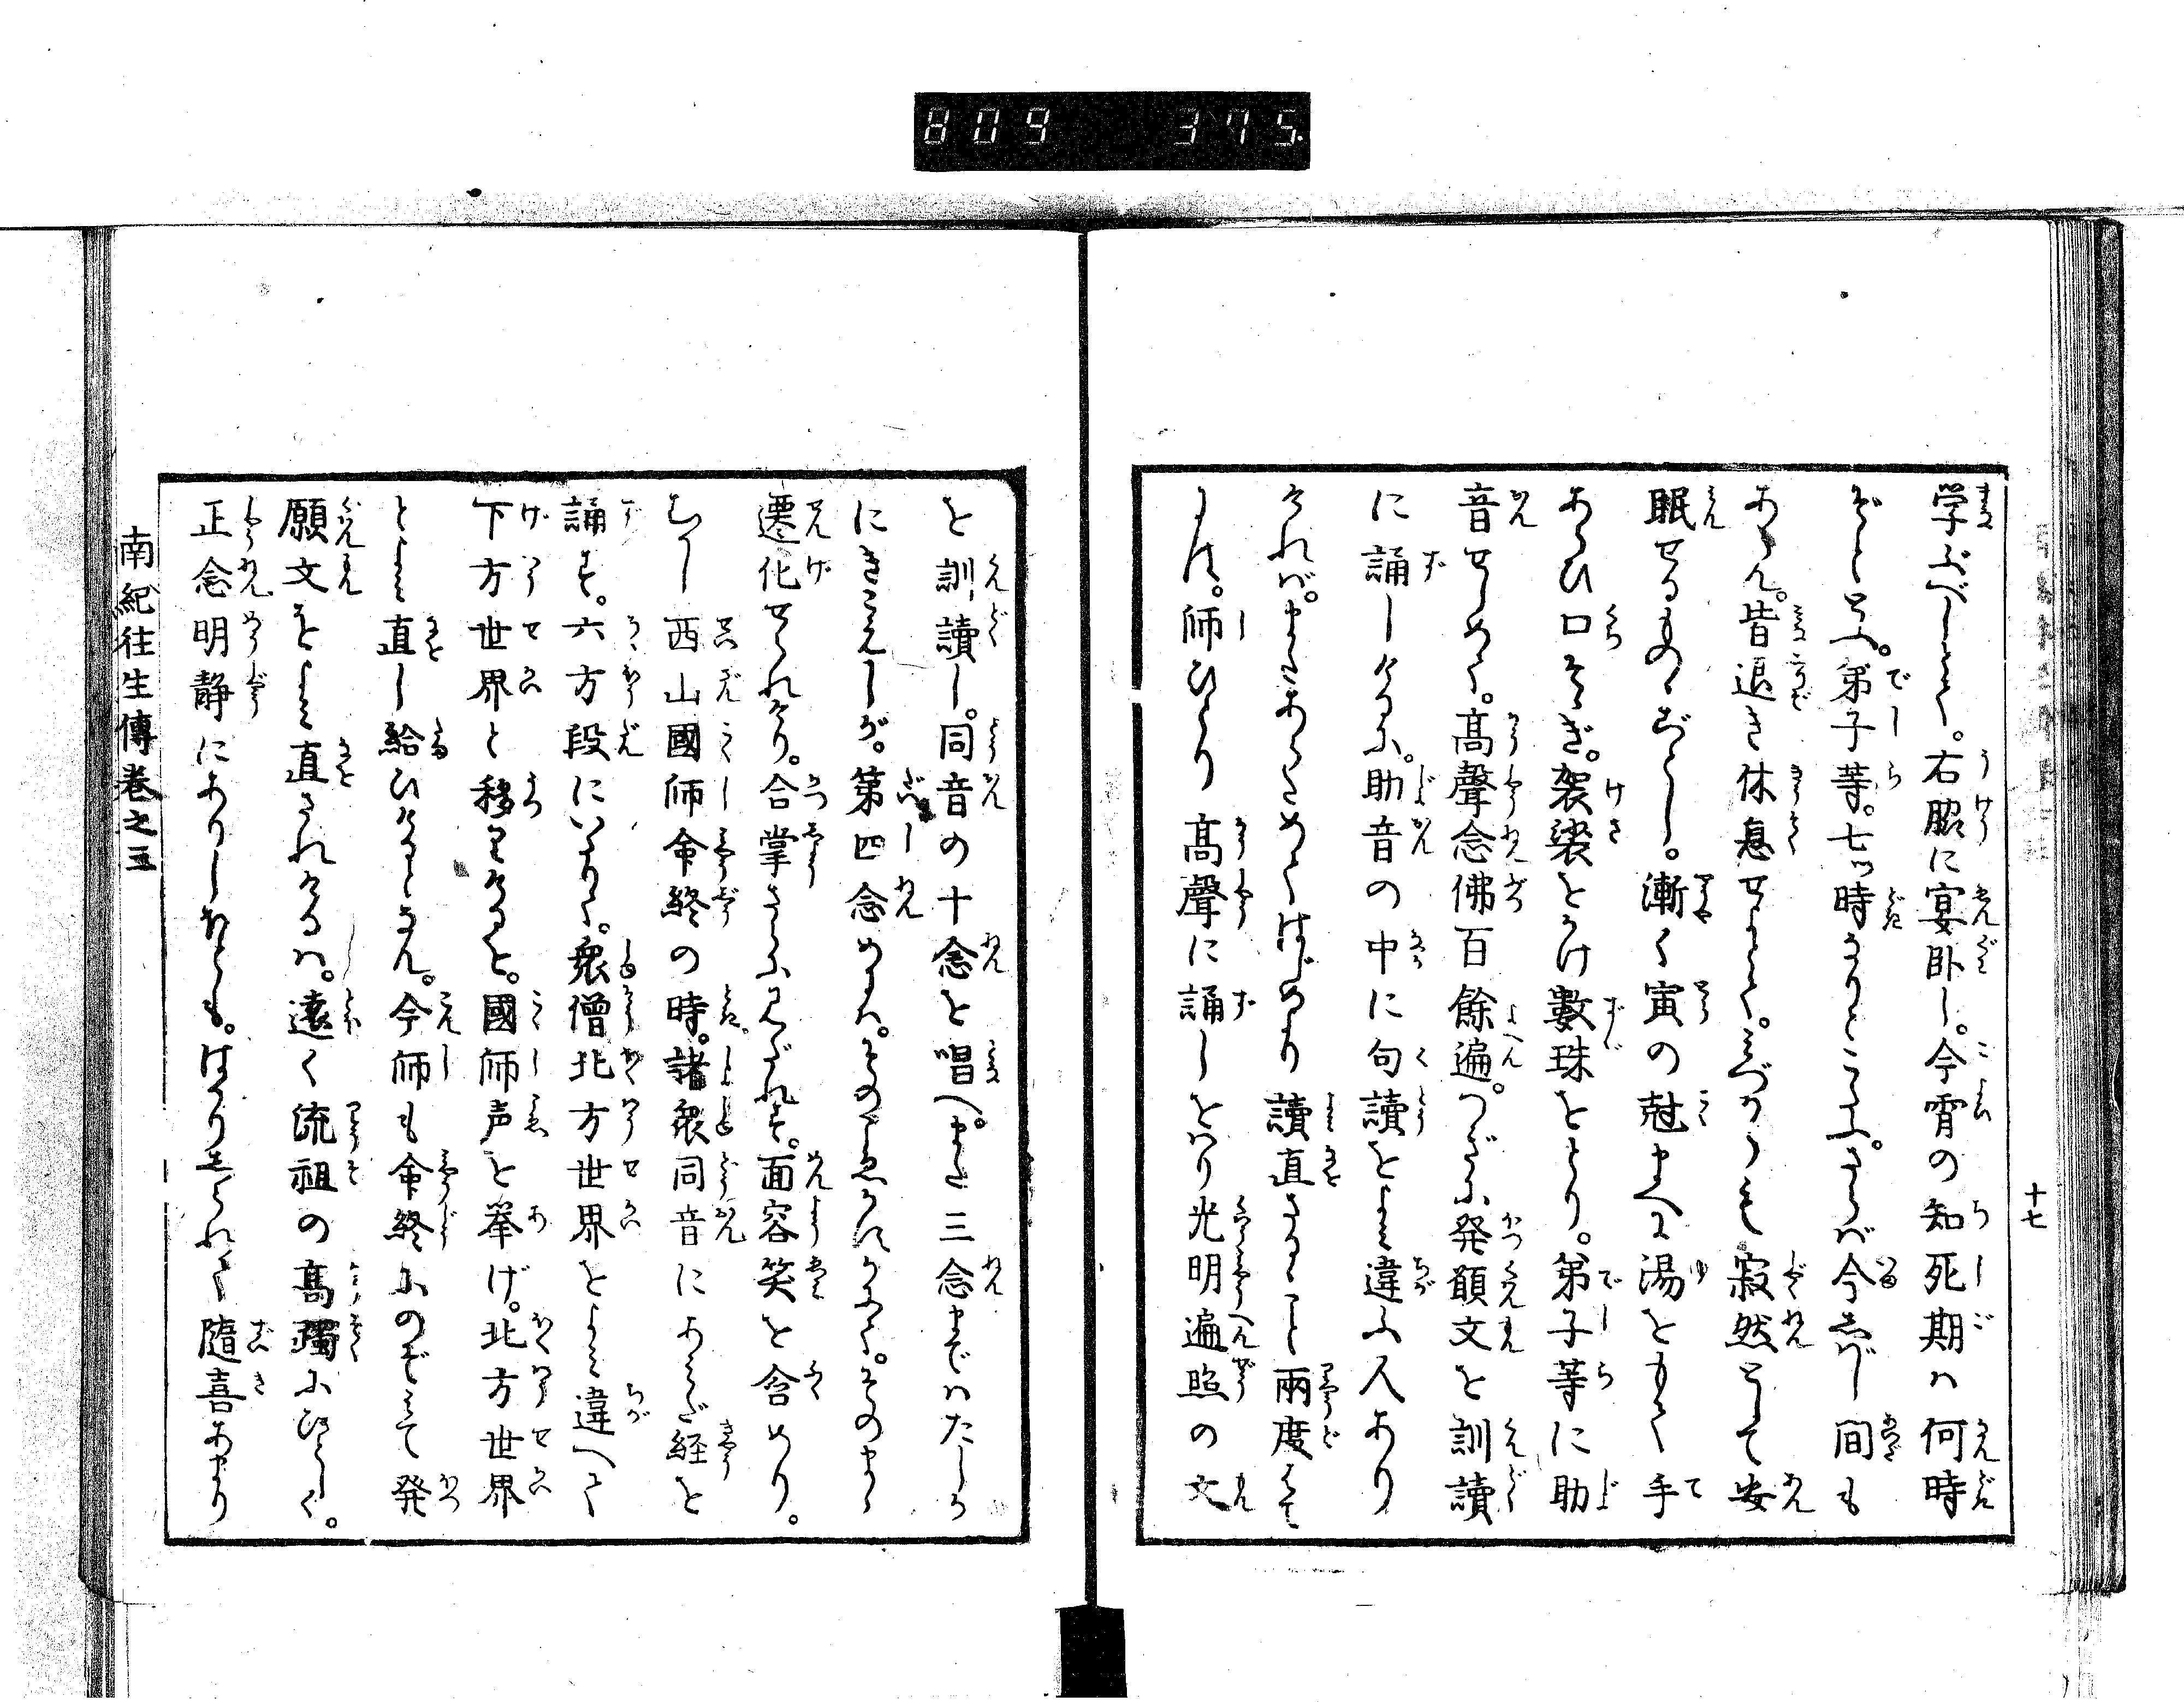 809 375
十七
学ぶべしとて。右脇に宴臥し。今宵の知死期ハ何時
ぞととふ。弟子等。七ッ時なりとこたふ。さらバ今しばし間も
あらん。皆退き休息せよとて。みづからも寂然として安
眠せるものゝごとし。漸く寅の尅まへに湯をもて手
あらひ口そゝぎ。袈裟をかけ數珠をとり。弟子等に助
音せしめて。高聲念佛百餘遍。つぎに発願文を訓讀
に誦しけるに。助音の中に句讀をよみ違ふ人あり
けれバ。またあらためてはじめより讀直さるゝこと兩度
にハ。師ひとり高聲に誦しをハり光明遍照の文
を訓讀し。同音の十念を唱へ。また三念までハたしか
にきこえしが。第四念めハ。そのこゑかすかにて。そのまゝ
遷化せられけり。合掌さらにみだれず。面容笑を含めり。
むかし西山國師命終の時。諸衆同音にあミだ経を
誦す。六方段にいたりて。衆僧北方世界をよミ違へて
下方世界と移りけるを。國師声を挙げ。北方世界
とよミ直し給ひけるとなん。今師も命終にのぞミて発
願文をよミ直されけるハ。遠く流祖の高躅にひとしく。
正念明静にありしかとも。はかりしられて隨喜あまり
南紀往生傳巻之三